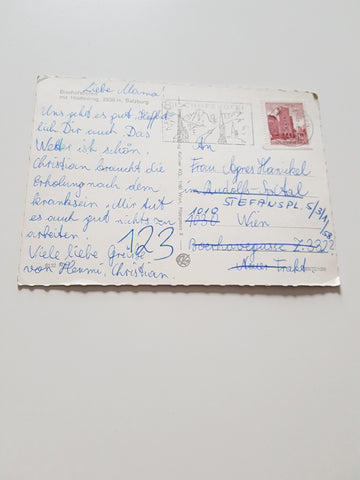 Liebe Mama!
Bischofshofen
mit Hochkönig, 2938 m, Salzburg
Uns geht es gut. Hoffent-
lich Dir auch. Das
Wetter ist schön.
Christian braucht die
Erholung nach dem
kranksein. Mir tut
es auch gut nichts zu
arbeiten.
Viele liebe Grüße
von Hermi, Christian.
123
An
Frau Agnes Hanikel
im Rudolf-Spital
STEFANSPL. 5/3/1/
1030 Wien
Boerhavegasse Z. 332
Neuer Trakt